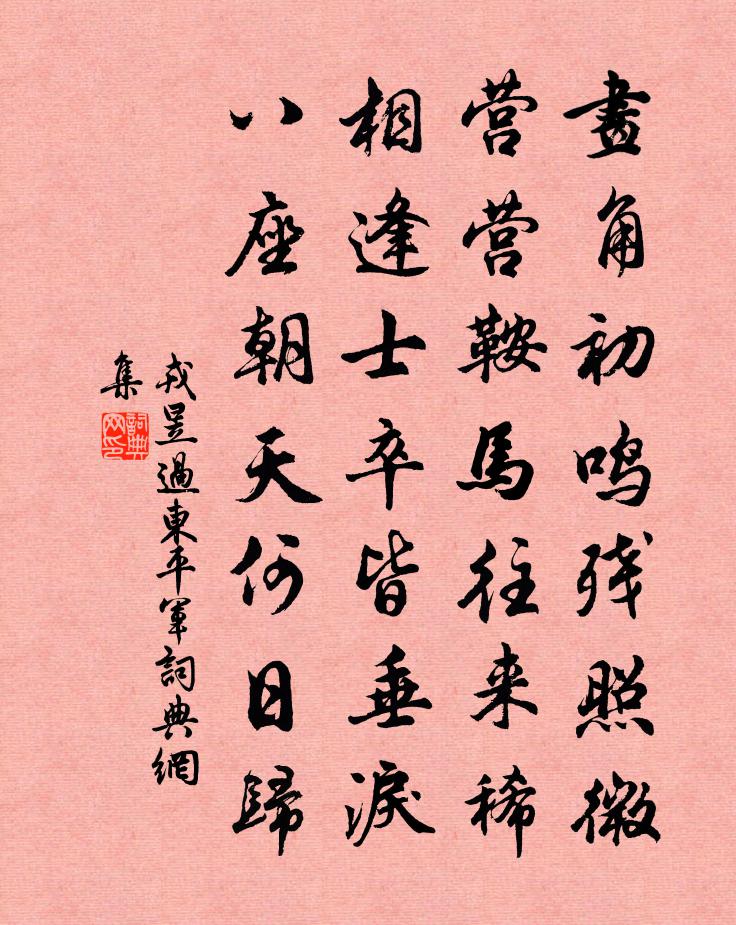 畫角初鸣残照微
营营鞍馬往来稀
相逢士卒皆垂淚
八座朝天何日歸
戎昱過東平軍詞典網
集
詞典网印